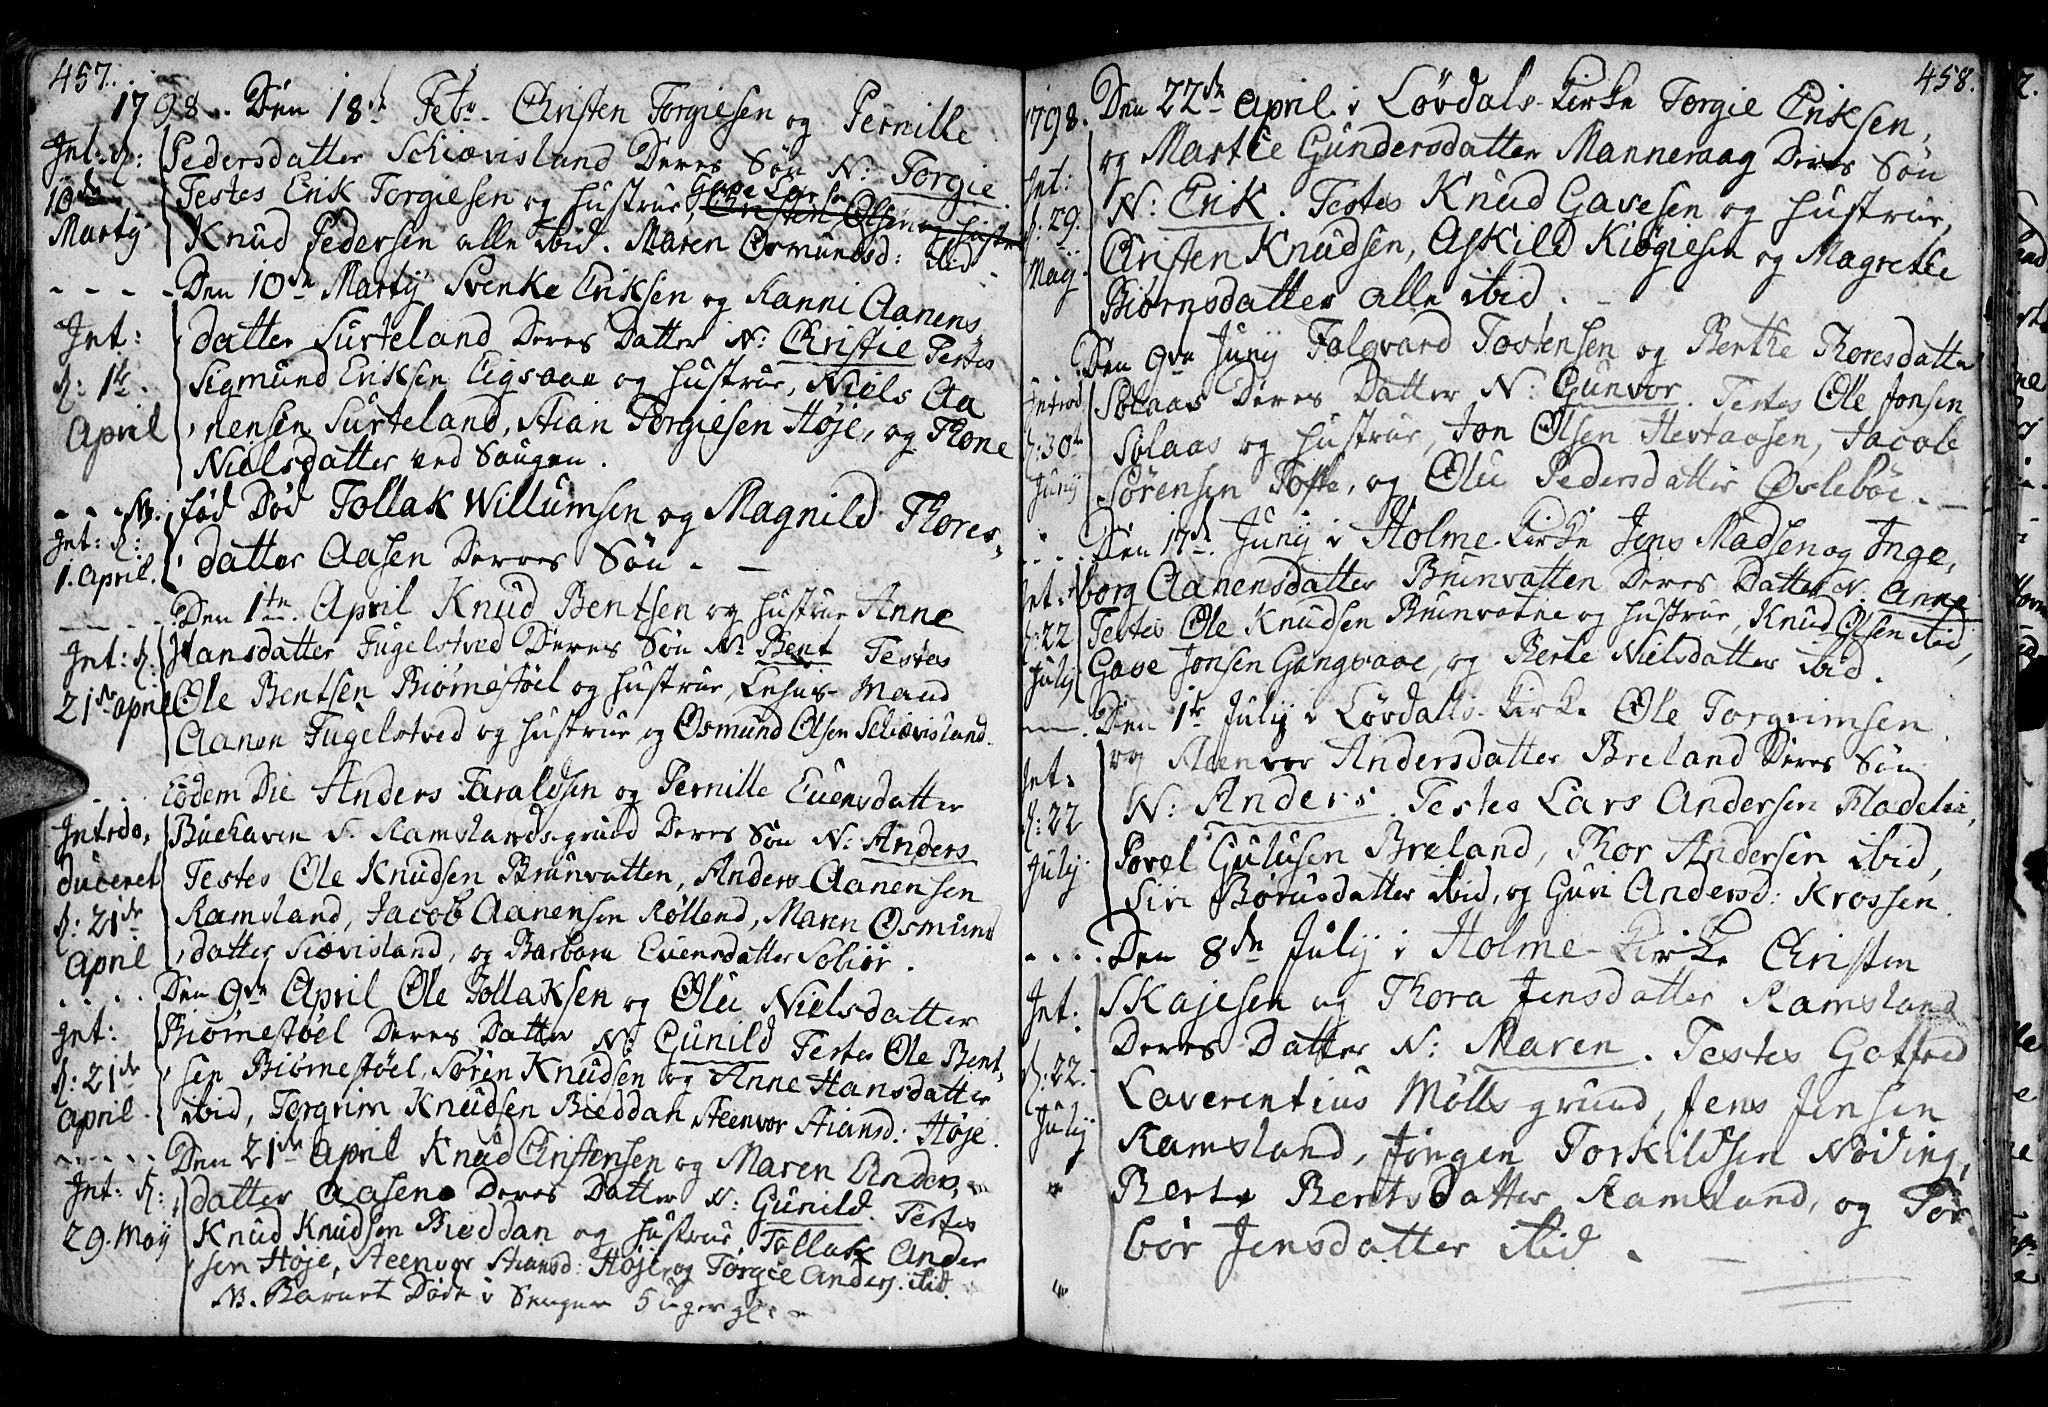 457.
1798. Den 18de Febr. Christen Torgiesen og Pernille
Int: d: Pedersdatter Schiævisland Deres Søn N: Torgie
10de Testes Erik Torgiesen og hustrue, Gave Larsen Christen Olsen og hustru
Martij Knud Pedersen alle ibid. Maren Osmundsd: ibid
Den 10de Martij Svenke Eriksen og Ranni Aanens
Int: datter Surteland Deres Datter N: Christie Testes
d: 1te Sigmund Eriksen Eigsaae og hustrue, Niels Aa
April nensen Surteland, Stian Torgiesen Høje, og Thone
Nielsdatter ved Saugen.
NB. fød Død Tollak Willumsen og Magnild Thores
Int: d: datter Aasen Deres Søn.
1. April.
Den 1te April Knud Bentsen og hustrue Anne
Int: d: Hansdatter Fugelstved Deres Søn N: Bent Testes
21de April Ole Bentsen Biørnestøel og hustrue, Lehns-Mand
Aanen Fugelstved og hustrue og Osmund Olsen Schiævisland.
Eodem Die Anders Taraldsen og Pernille Evensdatter
Introdu, Buehaven i Ramslands grund Deres Søn N: Anders
duceret Testes Ole Knudsen Brunvatten, Anders Aanensen
d: 21de Ramsland, Jacob Aanensen Røllend, Maren Osmunds
April datter Siævisland, og Barbara Evensdatter Soliør.
Den 9de April Ole Tollaksen og Olu Nielsdatter
Int: Biørnestøel Deres Datter N: Gunild Testes Ole Bent,
d: 21de sen Biørnestøel, Søren Knudsen og Anne Hansdatter
April ibid, Torgrim Knudsen Bieddan Steenvor Stiansd: Høje.
Den 21de April Knud Christensen og Maren Anders,
Int: d: datter Aasene Deres Datter N: Gunild. Testes
29. Maij Knud Knudsen Bieddan og hustrue, Tollak Ander
sen Høje, Steenvor Stiansd: Høje, og Torgie Anders. ibid.
NB. Barnet Døde i Sengen 5 uger gl.
458.
1798. Den 22de April i Løvdals-Kirke Torgie Eriksen,
og Marthe Gundersdatter Manneraag Deres Søn
Int: N: Erik. Testes Knud Gavesen og hustrue,
d: 29. Christen Knudsen, Askild Kiøgiesen og Magrethe
Maij. Biørnsdatter alle ibid.
Den 9de Junij Folqvard Tostensen og Berthe Thoresdatter
Introd Solaas Deres Datter N: Gunvor. Testes Ole Jonsen
d: 30te Solaas og hustrue, Jon Olsen Hertaasen, Jacob
Junij Sørensen Tofte, og Olu Pedersdatter Øvlebøe.
Den 17de Junij i Holme-Kirke Jens Madsen og Inge,
Int: borg Aanensdatter Brunvatten Deres Datter N. Anne
d: 22 Testes Ole Knudsen Brunvatne og hustrue, Knud Olsen ibid,
Julij Gave Jonsen Gangsaae, og Berte Nielsdatter ibid.
Den 1te Julij i Løvdalls-Kirke Ole Torgrimsen
og Steenvor Andersdatter Breland Deres Søn
Int: N: Anders. Testes Lars Andersen Fladelie,
d: 22 Povel Gulusen Breland, Thor Andersen ibid,
Julij Siri Børusdatter ibid, og Guri Andersd: Krossen.
Den 8de Julij i Holme-Kirke Christen
Int: Skajesen og Thora Jensdatter Ramsland
Deres Datter N: Maren. Testes Gotfred
d: 22. Laverentius Mølls grund, Jens Jensen
Julij Ramsland, Jørgen Torkildsen Nøding,
Berte Bentsdatter Ramsland, og Tor
bør Jensdatter ibid.